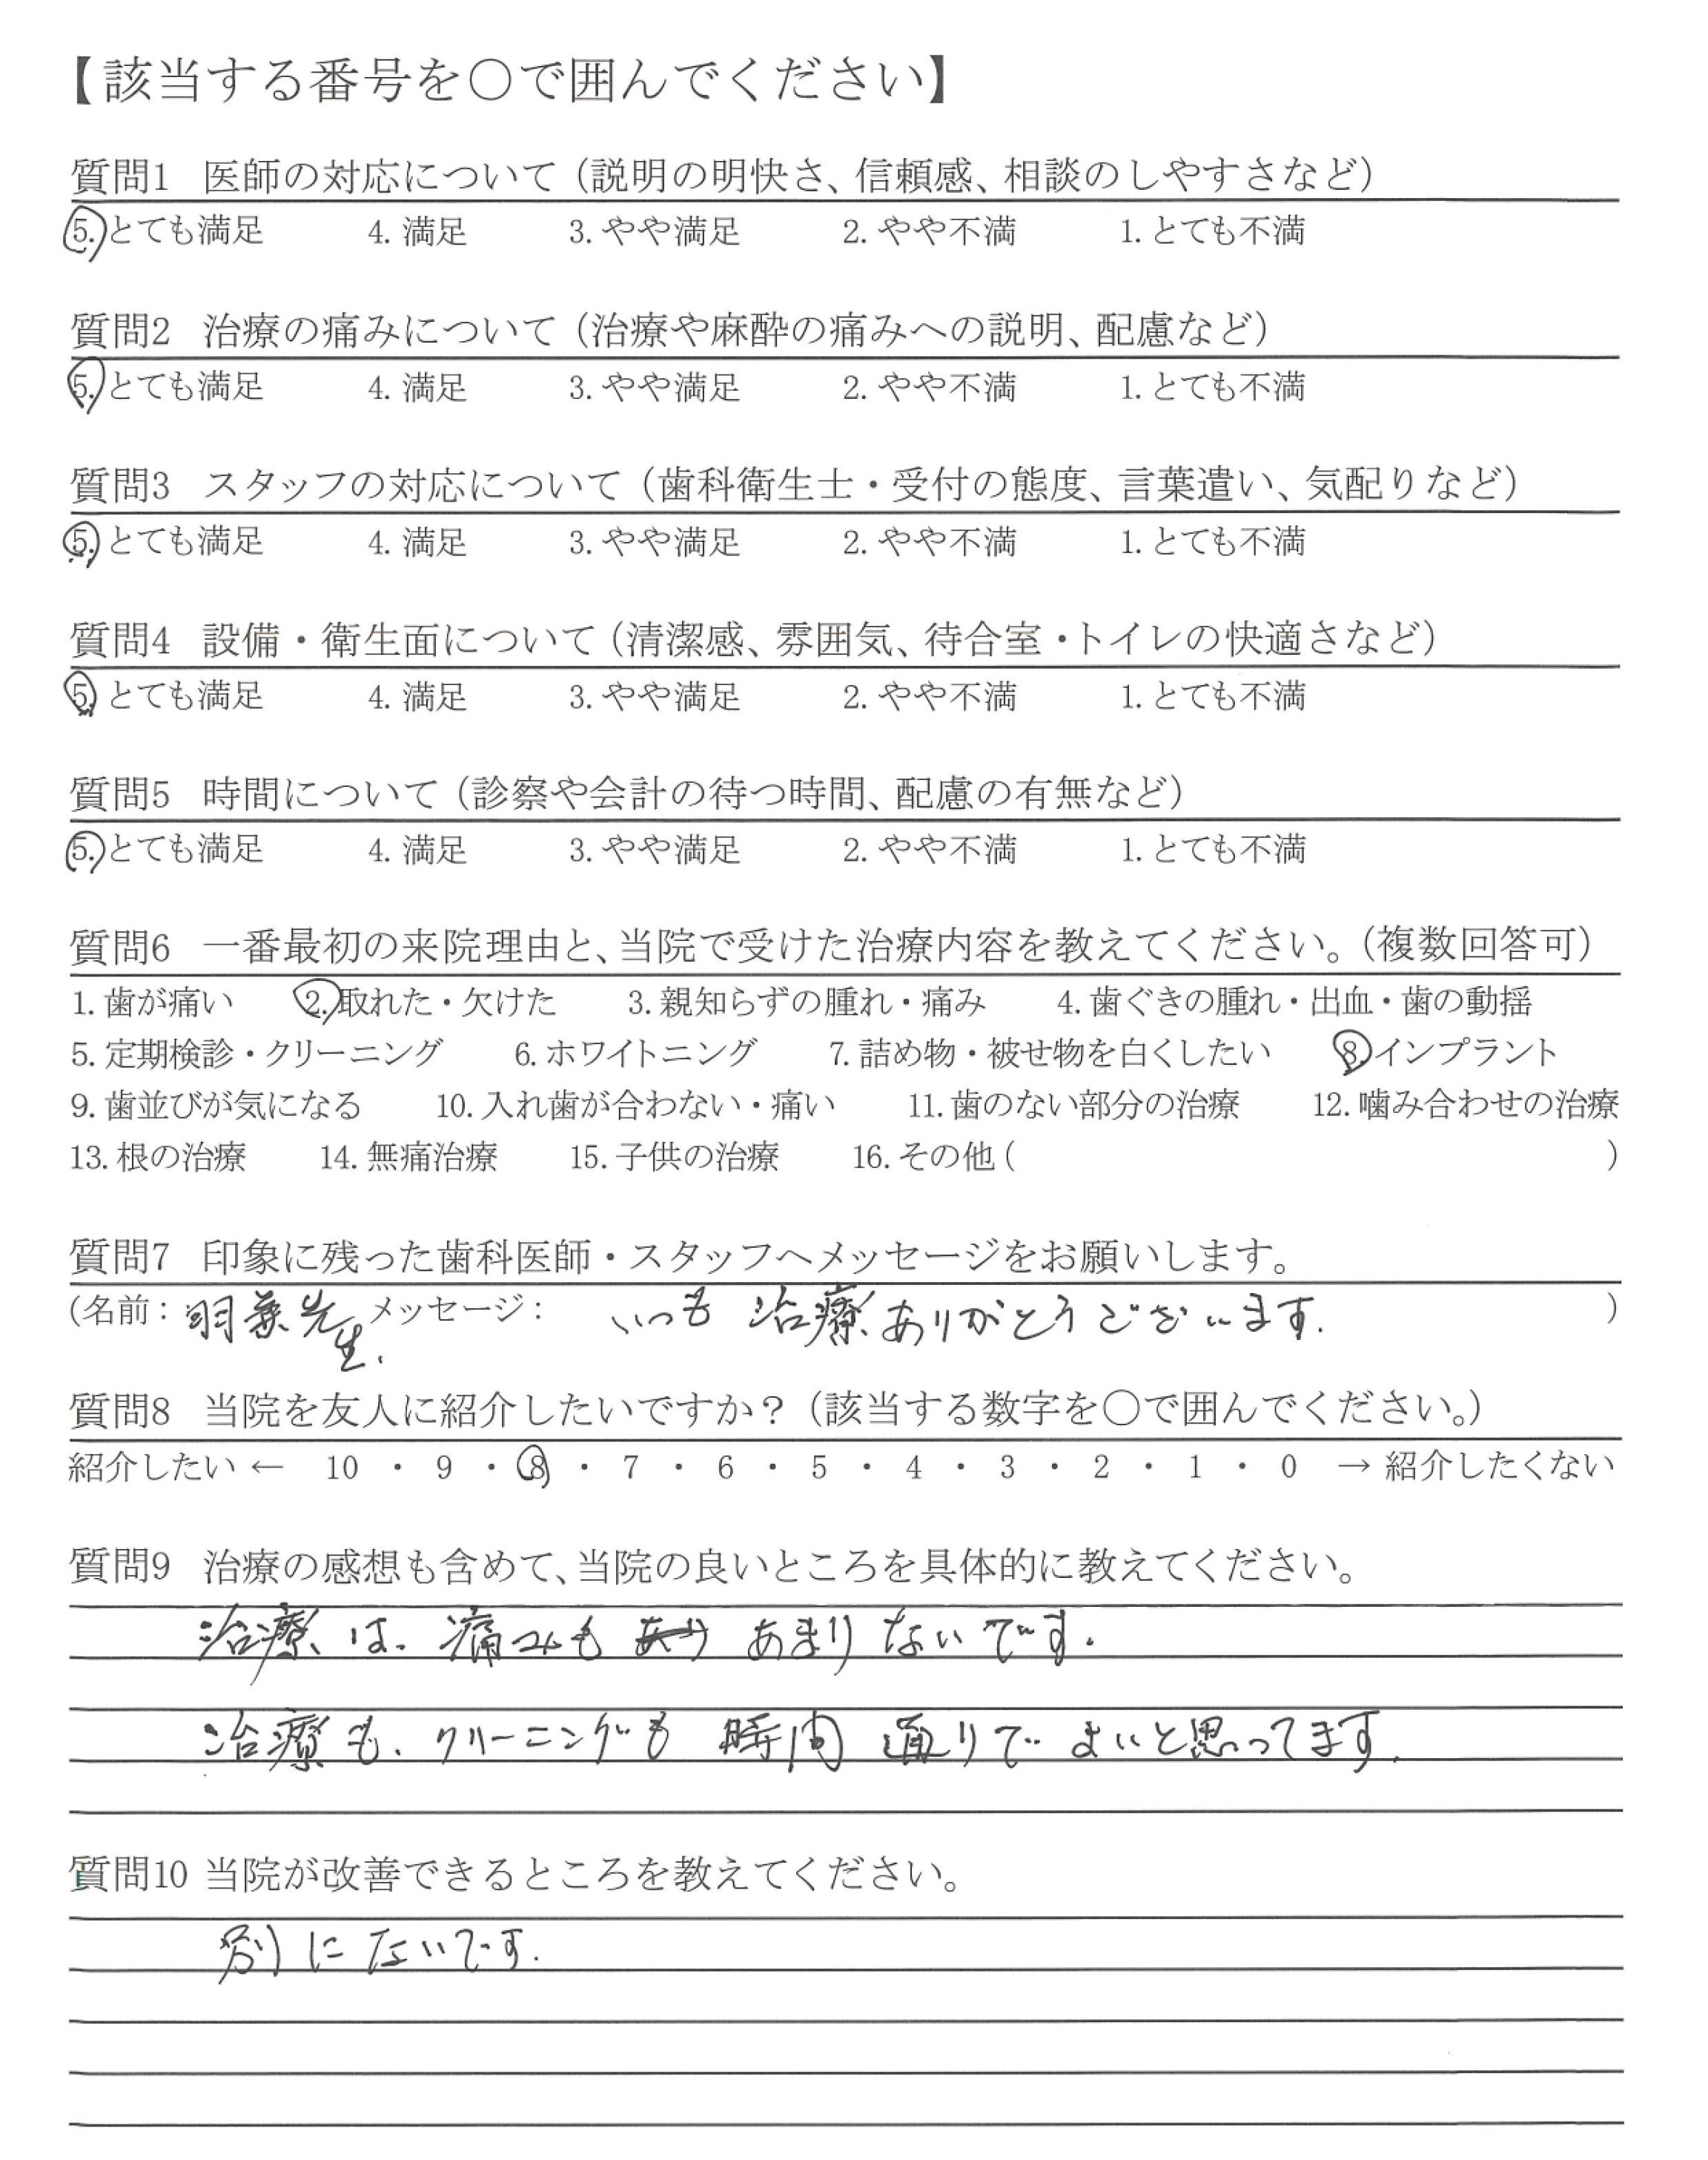 【該当する番号を○で囲んでください】
質問1 医師の対応について（説明の明快さ、信頼感、相談のしやすさなど）
5. とても満足 4. 満足 3. やや満足 2. やや不満 1. とても不満
質問2 治療の痛みについて（治療や麻酔の痛みへの説明、配慮など）
5. とても満足 4. 満足 3. やや満足 2. やや不満 1. とても不満
質問3 スタッフの対応について（歯科衛生士・受付の態度、言葉遣い、気配りなど）
5. とても満足 4. 満足 3. やや満足 2. やや不満 1. とても不満
質問4 設備・衛生面について（清潔感、雰囲気、待合室・トイレの快適さなど）
5. とても満足 4. 満足 3. やや満足 2. やや不満 1. とても不満
質問5 時間について（診察や会計の待つ時間、配慮の有無など）
5. とても満足 4. 満足 3. やや満足 2. やや不満 1. とても不満
質問6 一番最初の来院理由と、当院で受けた治療内容を教えてください。（複数回答可）
1. 歯が痛い 2. 取れた・欠けた 3. 親知らずの腫れ・痛み 4. 歯ぐきの腫れ・出血・歯の動揺
5. 定期検診・クリーニング 6. ホワイトニング 7. 詰め物・被せ物を白くしたい 8. インプラント
9. 歯並びが気になる 10. 入れ歯が合わない・痛い 11. 歯のない部分の治療 12. 噛み合わせの治療
13. 根の治療 14. 無痛治療 15. 子供の治療 16. その他 ( )
質問7 印象に残った歯科医師・スタッフへメッセージをお願いします。
(名前： 羽兼先生. メッセージ： いつも 治療ありがとうございます. )
質問8 当院を友人に紹介したいですか？（該当する数字を○で囲んでください。）
紹介したい ← 10 ・ 9 ・ 8 ・ 7 ・ 6 ・ 5 ・ 4 ・ 3 ・ 2 ・ 1 ・ 0 → 紹介したくない
質問9 治療の感想も含めて、当院の良いところを具体的に教えてください。
治療は、痛みも あまり ないです.
治療も、クリーニングも 時間 通りで よいと思ってます.
質問10 当院が改善できるところを教えてください。
別にないです.